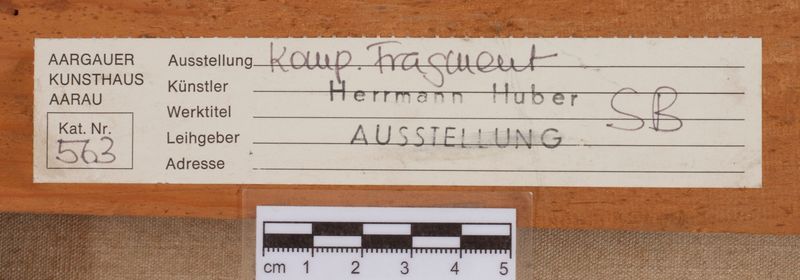 AARGAUER
KUNSTHAUS
AARAU
Kat. Nr.
563
Ausstellung Komp. Fragment
Künstler Herrmann Huber
Werktitel SB
Leihgeber AUSSTELLUNG
Adresse
cm 1 2 3 4 5